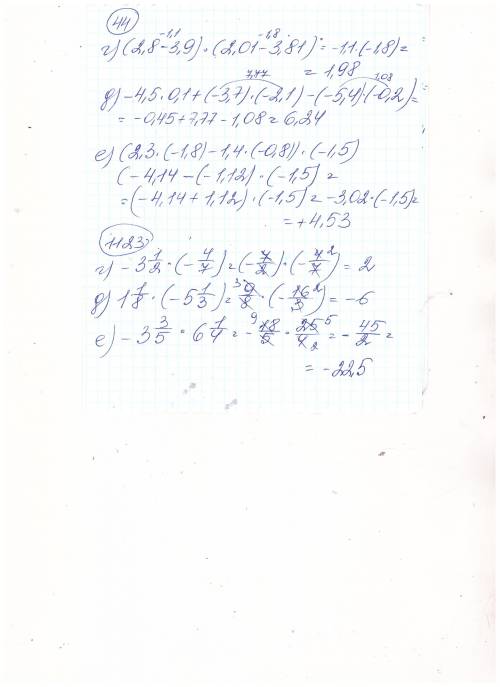 44
-1,1 -1,8
г) (2,8-3,9)·(2,01-3,81) = -1,1·(-1,8)=
= 1,98
7,77 1,08
д) -4,5·0,1+(-3,7)·(-2,1)-(-5,4)·(-0,2)=
= -0,45+7,77-1,08=6,24
е) (2,3·(-1,8)-1,4·(-0,8))·(-1,5)
(-4,14-(-1,12))·(-1,5)=
=(-4,14+1,12)·(-1,5)=-3,02·(-1,5)=
=+4,53
1123
г) -3 1/2·(-4/7)=(-7/2)·(-4/7 2)=2
д) 1 1/8·(-5 1/3)= 3 9/8·(-16/3 2)=-6
е) -3 3/5·6 1/4=- 9 18/5·25/4 5 2=-45/2=
= -22,5